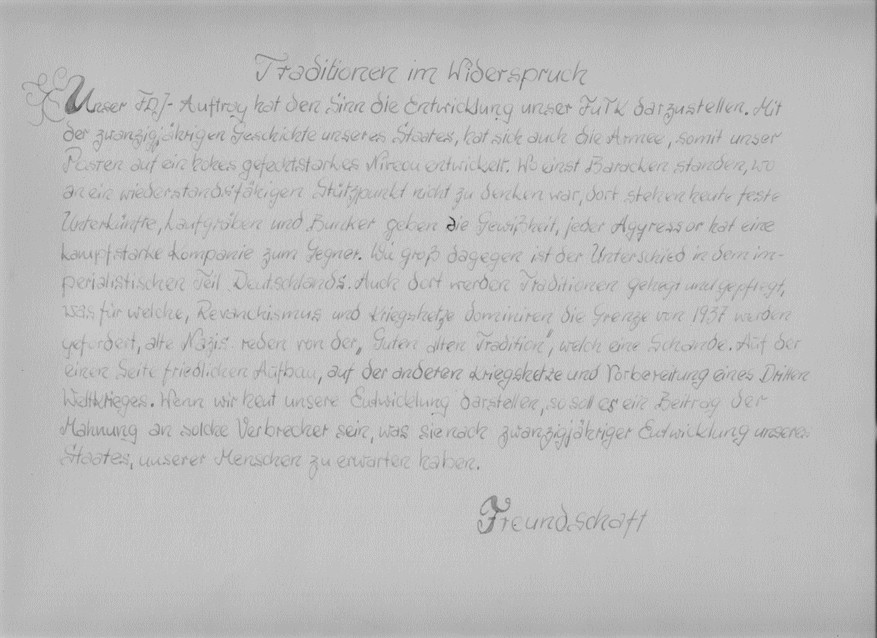 Traditionen im Widerspruch
Unser FDJ-Auftrag hat den Sinn die Entwicklung unser FuTK darzustellen. Mit
der zwanzigjährigen Geschichte unseres Staates, hat sich auch die Armee, somit unser
Posten auf ein hohes gefechtstarkes Niveau entwickelt. Wo einst Baracken standen, wo
an ein wiederstandsfähigen Stützpunkt nicht zu denken war, dort stehen heute feste
Unterkünfte, Laufgräben und Bunker geben die Gewißheit, jeder Aggressor hat eine
kampfstarke Kompanie zum Gegner. Wie groß dagegen ist der Unterschied in dem im-
perialistischen Teil Deutschlands. Auch dort werden Traditionen gehegt und gepflegt,
was für welche, Revanchismus und Kriegshetze dominiren die Grenze von 1937 werden
gefordert, alte Nazis reden von der „Guten alten Tradition", welch eine Schande. Auf der
einen Seite friedlichen Aufbau, auf der anderen Kriegshetze und Vorbereitung eines Dritten
Weltkrieges. Wenn wir heut unsere Entwicklung darstellen, so soll es ein Beitrag der
Mahnung an solche Verbrecher sein, was sie nach zwanzigjähriger Entwicklung unseres
Staates, unserer Menschen zu erwarten haben.
Freundschaft